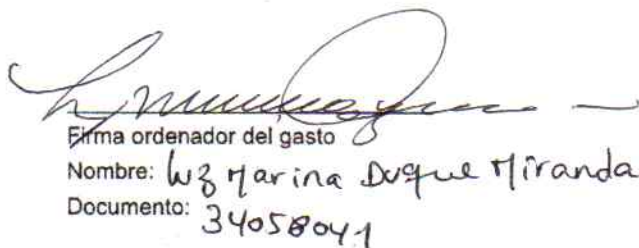 Firma ordenador del gasto
Nombre: Luz Marina Duque Miranda
Documento: 34058041